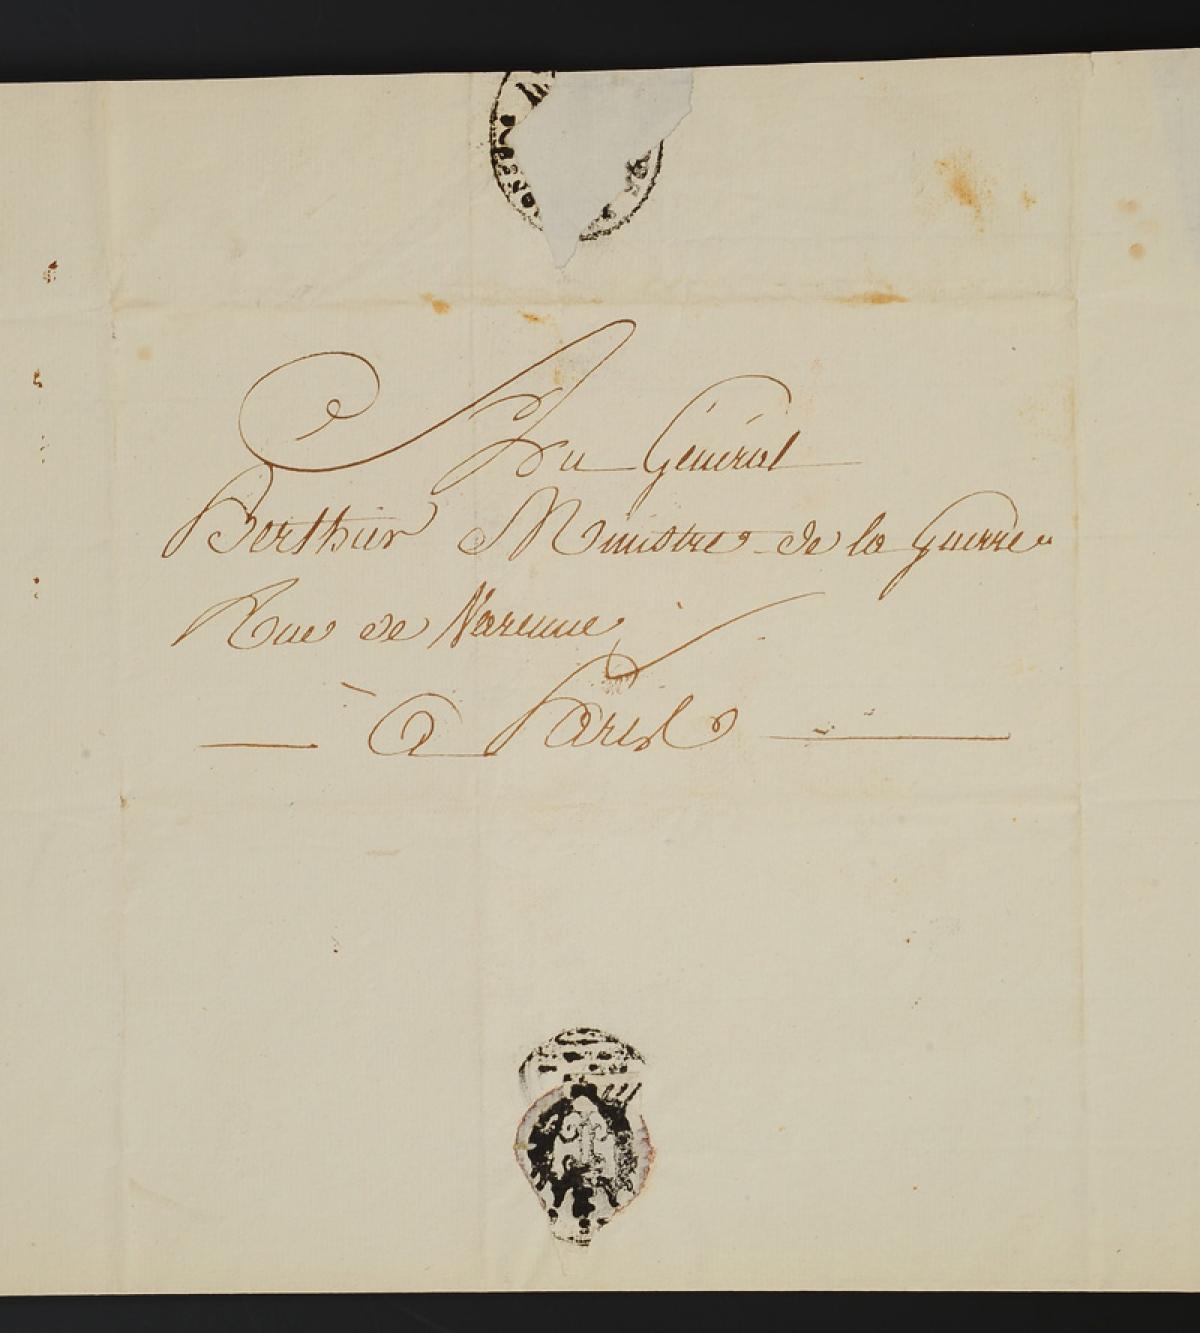 Au Général
Berthier Ministre de la Guerre
Rue de Varenne
à Paris